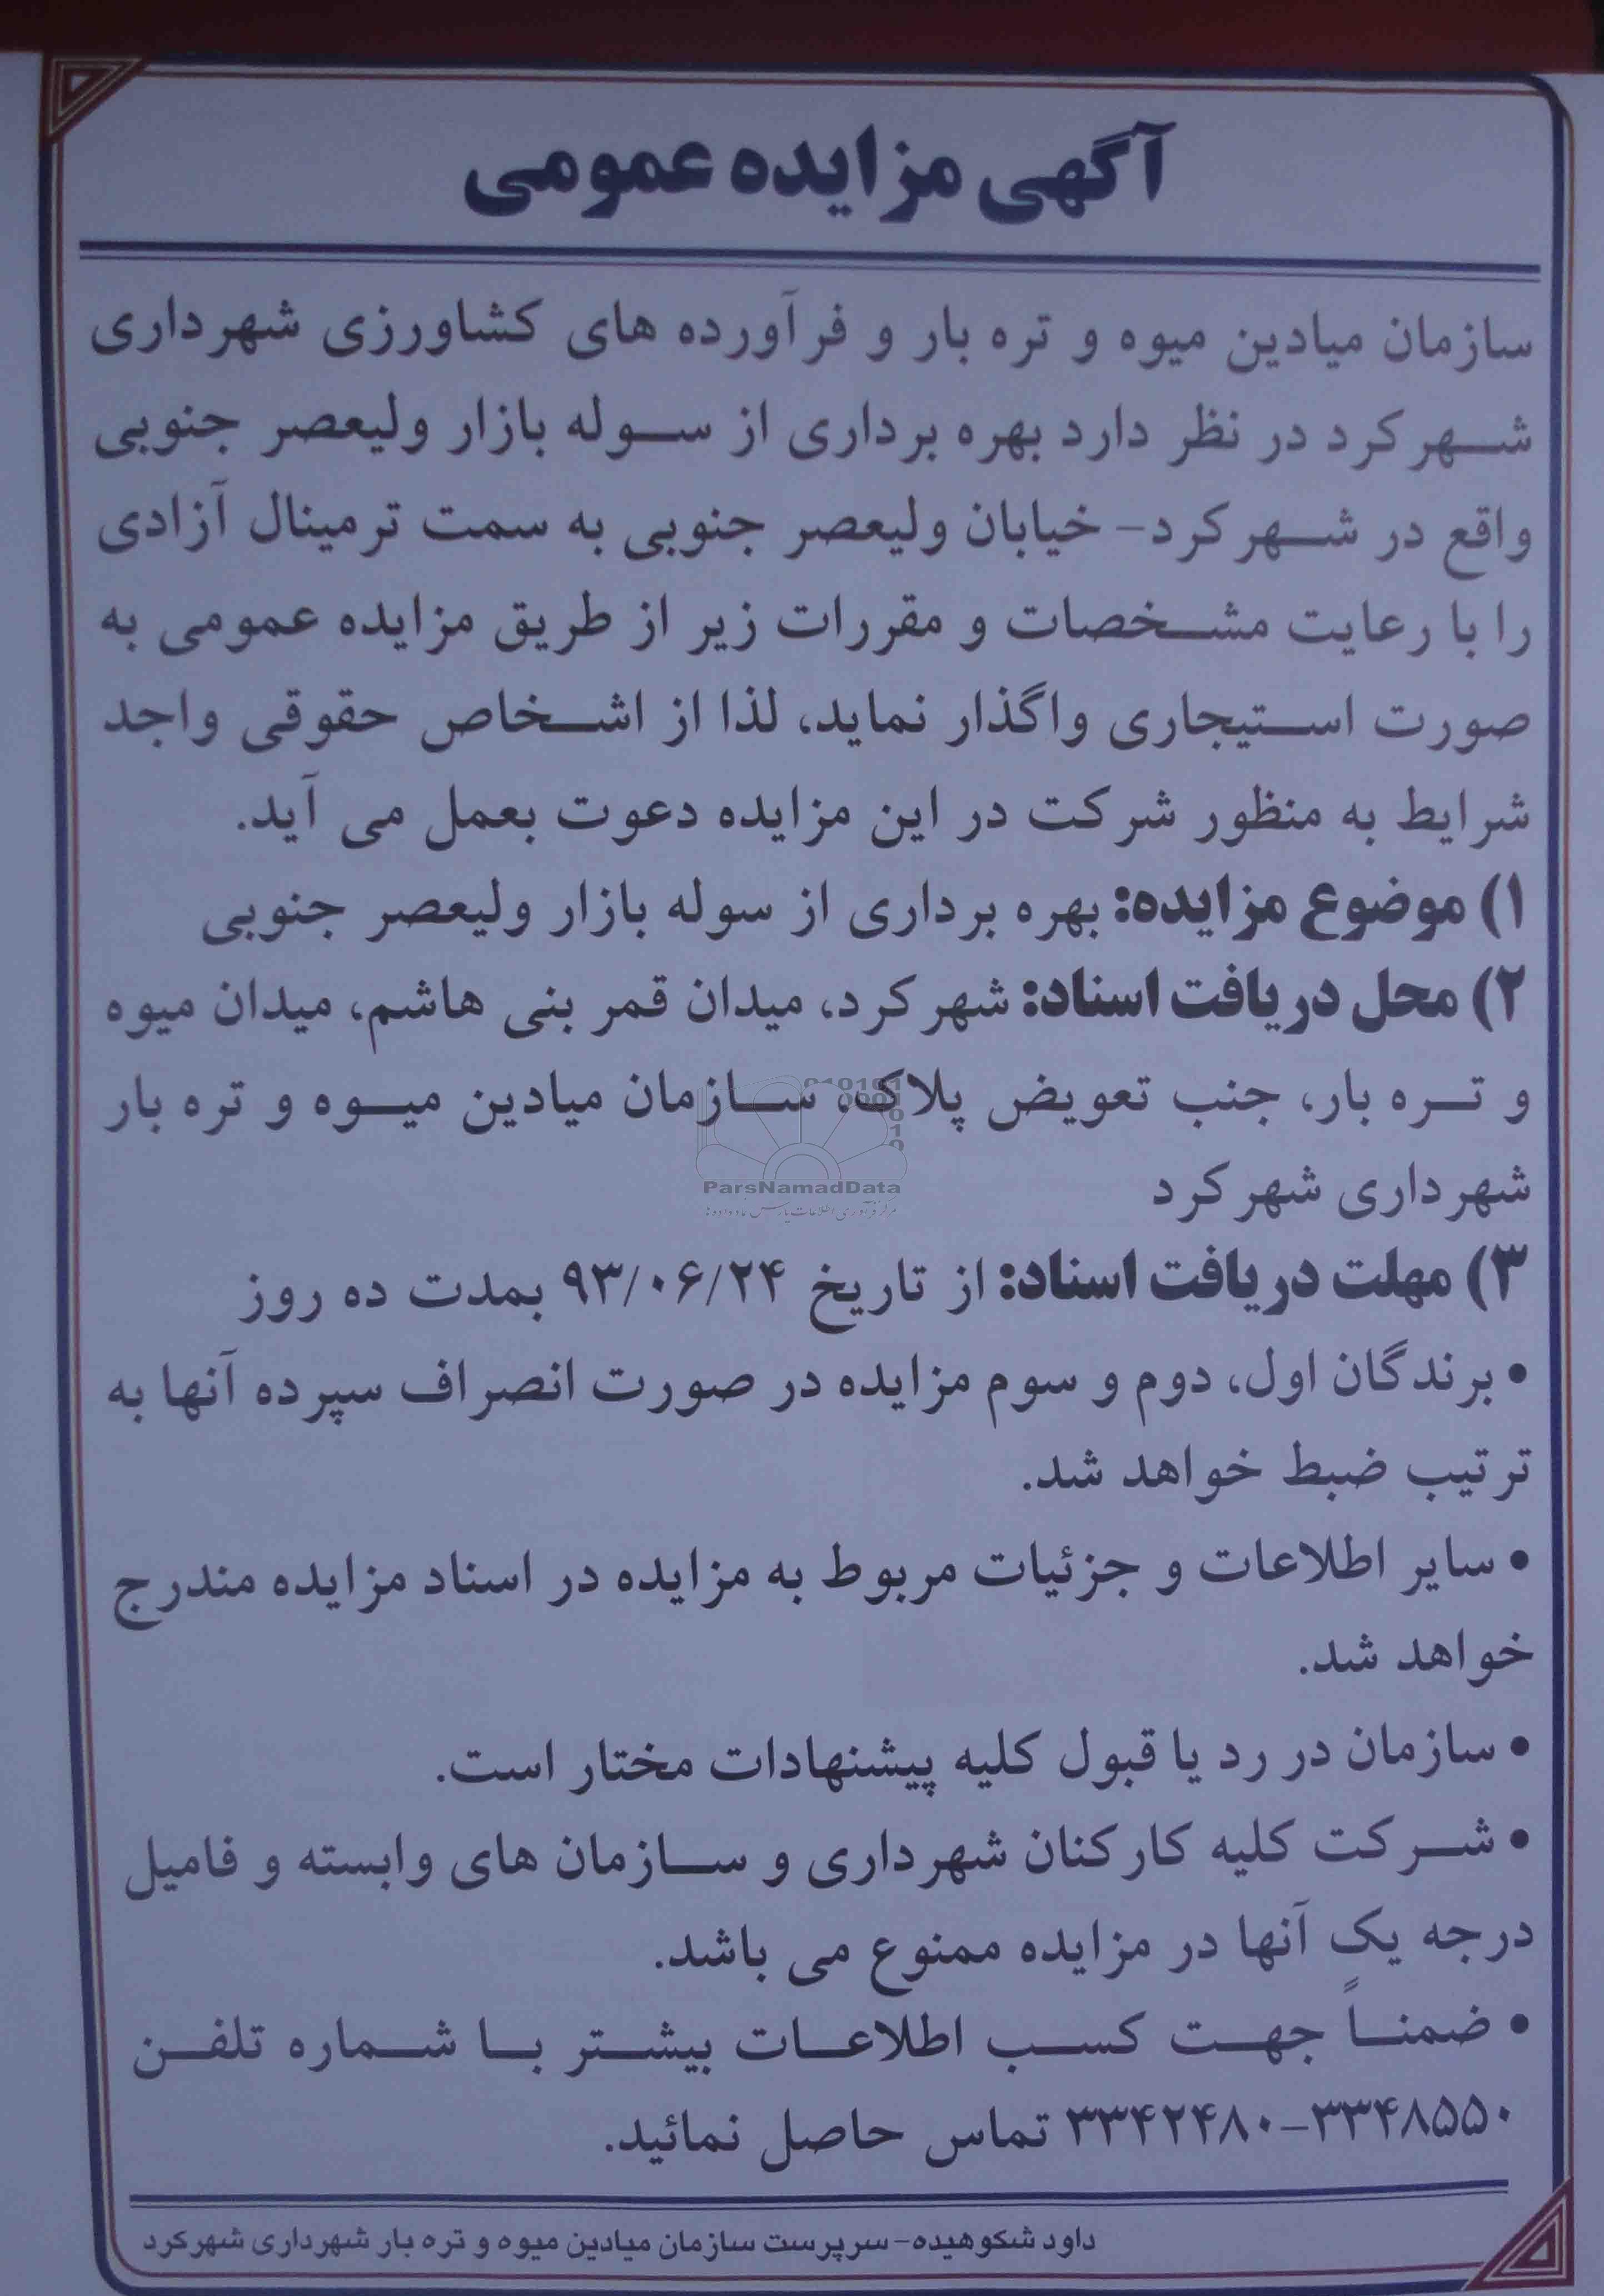 آگهی مزایده عمومی
سازمان میادین میوه و تره بار و فرآورده های کشاورزی شهرداری
شهرکرد در نظر دارد بهره برداری از سوله بازار ولیعصر جنوبی
واقع در شهرکرد- خیابان ولیعصر جنوبی به سمت ترمینال آزادی
را با رعایت مشخصات و مقررات زیر از طریق مزایده عمومی به
صورت استیجاری واگذار نماید، لذا از اشخاص حقوقی واجد
شرایط به منظور شرکت در این مزایده دعوت بعمل می آید.
۱) موضوع مزایده: بهره برداری از سوله بازار ولیعصر جنوبی
۲) محل دریافت اسناد: شهرکرد، میدان قمر بنی هاشم، میدان میوه
و تره بار، جنب تعویض پلاک، سازمان میادین میوه و تره بار
ParsNamadData
مرکز فرآوری اطلاعات پارس نماد داده ها
شهرداری شهرکرد
۳) مهلت دریافت اسناد: از تاریخ ۹۳/۰۶/۲۴ بمدت ده روز
• برندگان اول، دوم و سوم مزایده در صورت انصراف سپرده آنها به
ترتیب ضبط خواهد شد.
• سایر اطلاعات و جزئیات مربوط به مزایده در اسناد مزایده مندرج
خواهد شد.
• سازمان در رد یا قبول کلیه پیشنهادات مختار است.
• شرکت کلیه کارکنان شهرداری و سازمان های وابسته و فامیل
درجه یک آنها در مزایده ممنوع می باشد.
• ضمناً جهت کسب اطلاعات بیشتر با شماره تلفن
۳۳۴۸۵۵۰-۳۳۴۲۴۸۰ تماس حاصل نمائید.
داود شکوهیده- سرپرست سازمان میادین میوه و تره بار شهرداری شهرکرد